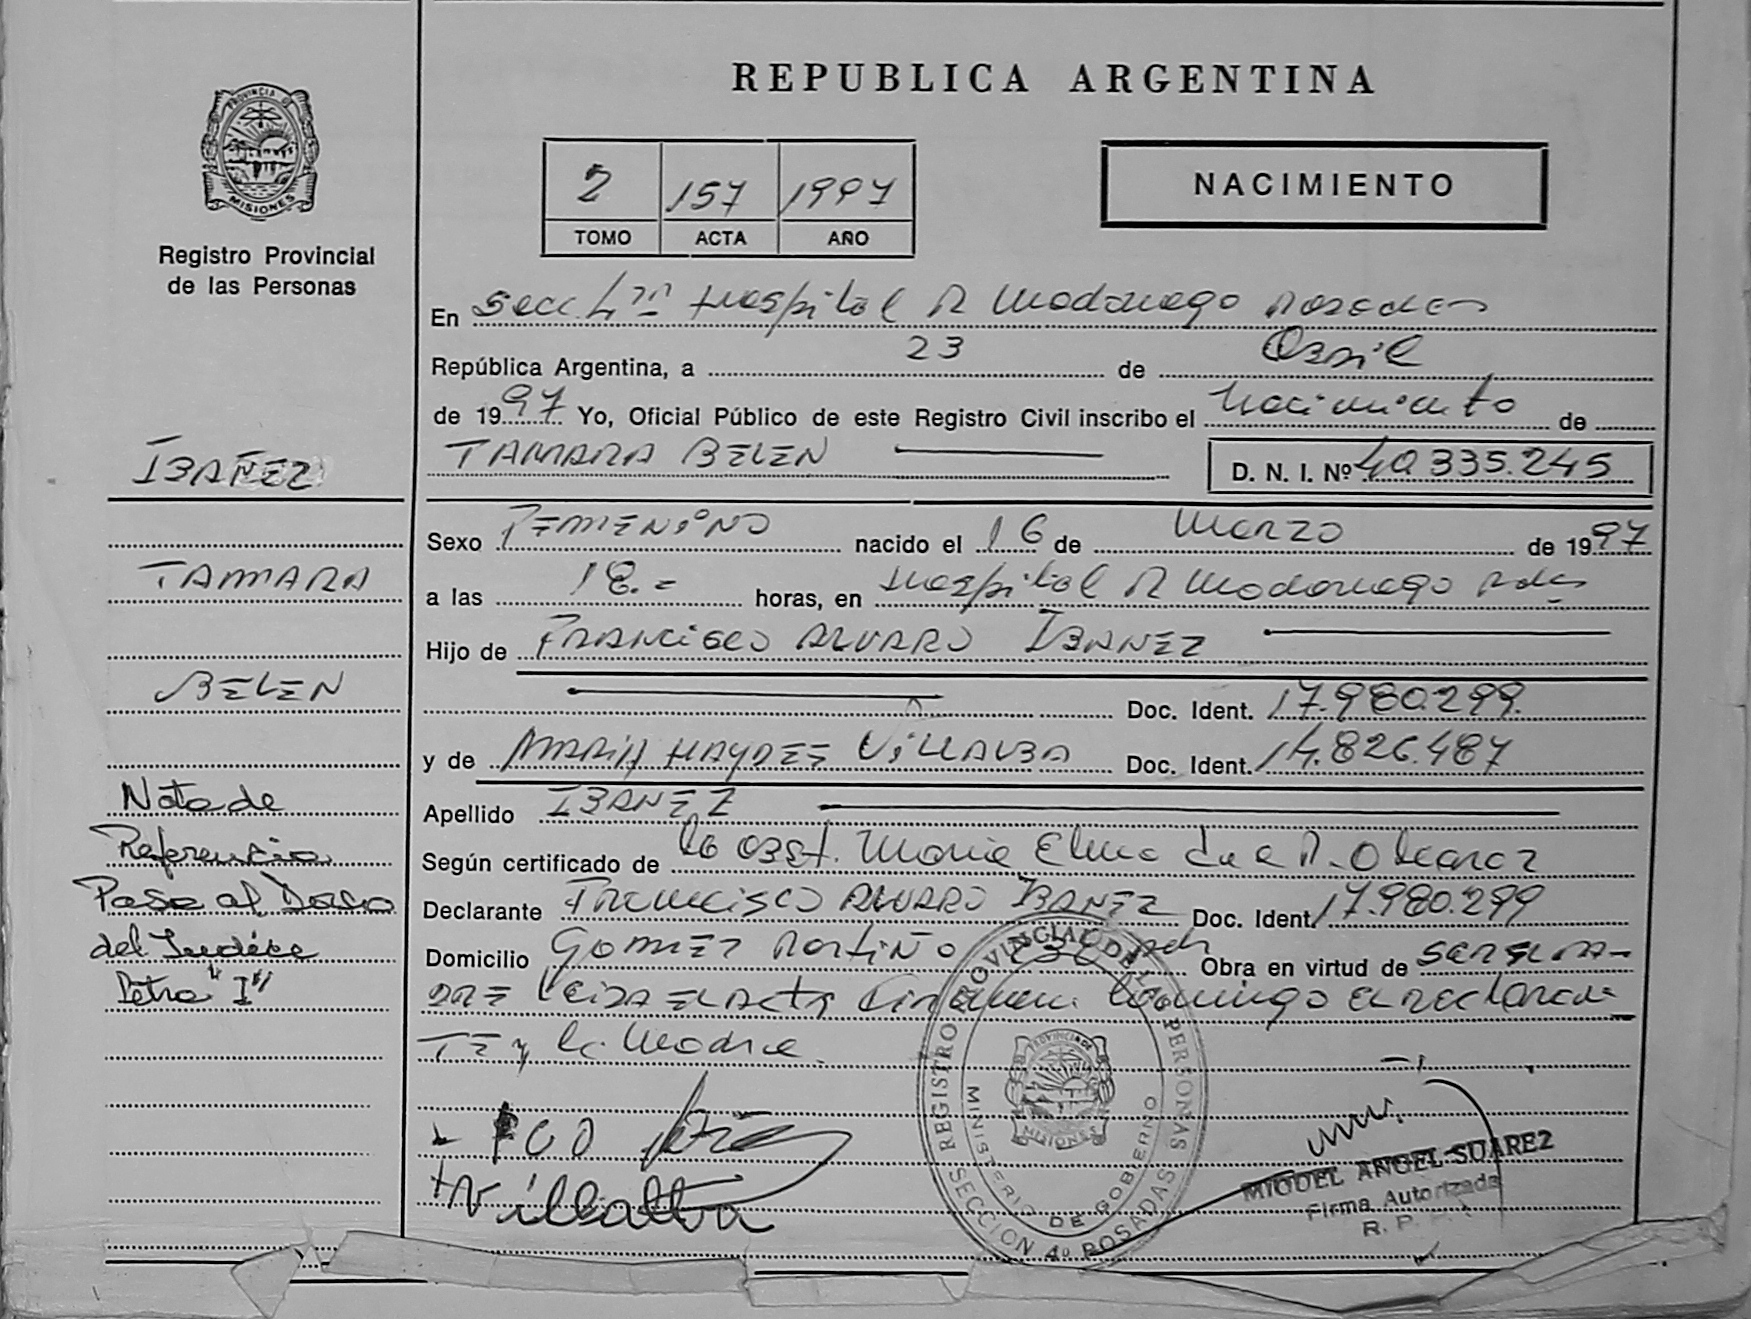 PROVINCIA DE
MISIONES
Registro Provincial
de las Personas
REPUBLICA ARGENTINA
2 157 1997
TOMO ACTA AÑO
NACIMIENTO
En Secc. 4ta Hospital R Madariaga Posadas
República Argentina, a 23 de Abril
de 1997 Yo, Oficial Público de este Registro Civil inscribo el Nacimiento de
TAMARA BELEN D. N. I. Nº 40.335.245
IBAÑEZ
TAMARA
BELEN
Nota de
Referencia
Pase al Dorso
del Indice
Letra "I"
Sexo FEMENINO nacido el 16 de Marzo de 1997
a las 18.- horas, en Hospital R Madariaga Pdas
Hijo de FRANCISCO ALVARO IBANEZ
Doc. Ident. 17.980.299.
y de MARIA HAYDEE VILLALBA Doc. Ident. 14.826.487
Apellido IBANEZ
Según certificado de la Obst. Maria Elena de Alcaraz
Declarante FRANCISCO ALVARO IBANEZ Doc. Ident. 17.980.299
Domicilio GOMEZ PORTIÑO Obra en virtud de SER EL PA-
DRE Leida EL Acta Firman Conmigo el declaran
TE y la Madre.
REGISTRO PROVINCIAL DE LAS PERSONAS
MINISTERIO DE GOBIERNO
PROVINCIA DE
MISIONES
SECCION 4º POSADAS
Villalba
MIGUEL ANGEL SUAREZ
Firma Autorizada
R. P.